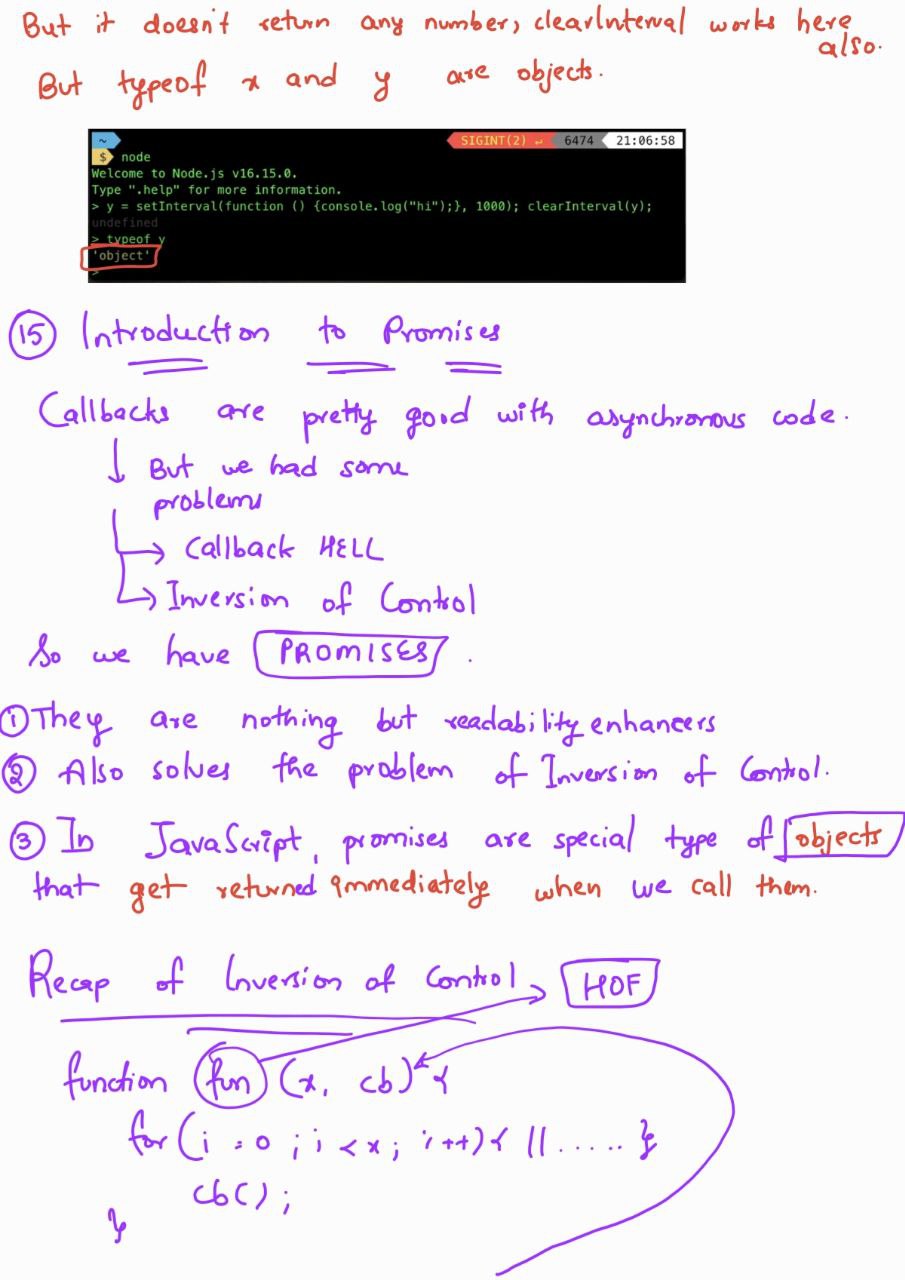 But it doesn't return any number, clearInterval works here
also.
But typeof x and y are objects.
~ SIGINT(2) ↵ 6474 21:06:58
$ node
Welcome to Node.js v16.15.0.
Type ".help" for more information.
> y = setInterval(function () {console.log("hi");}, 1000); clearInterval(y);
undefined
> typeof y
'object'
>
15 Introduction to Promises
Callbacks are pretty good with asynchronous code.
↓ But we had some
problems
→ Callback HELL
→ Inversion of Control
So we have PROMISES.
① They are nothing but readability enhancers
② Also solves the problem of Inversion of Control.
③ In JavaScript, promises are special type of objects
that get returned immediately when we call them.
Recap of Inversion of Control → HOF
function fun (x, cb) {
for (i = 0 ; i < x ; i++) { || ..... }
cb() ;
}